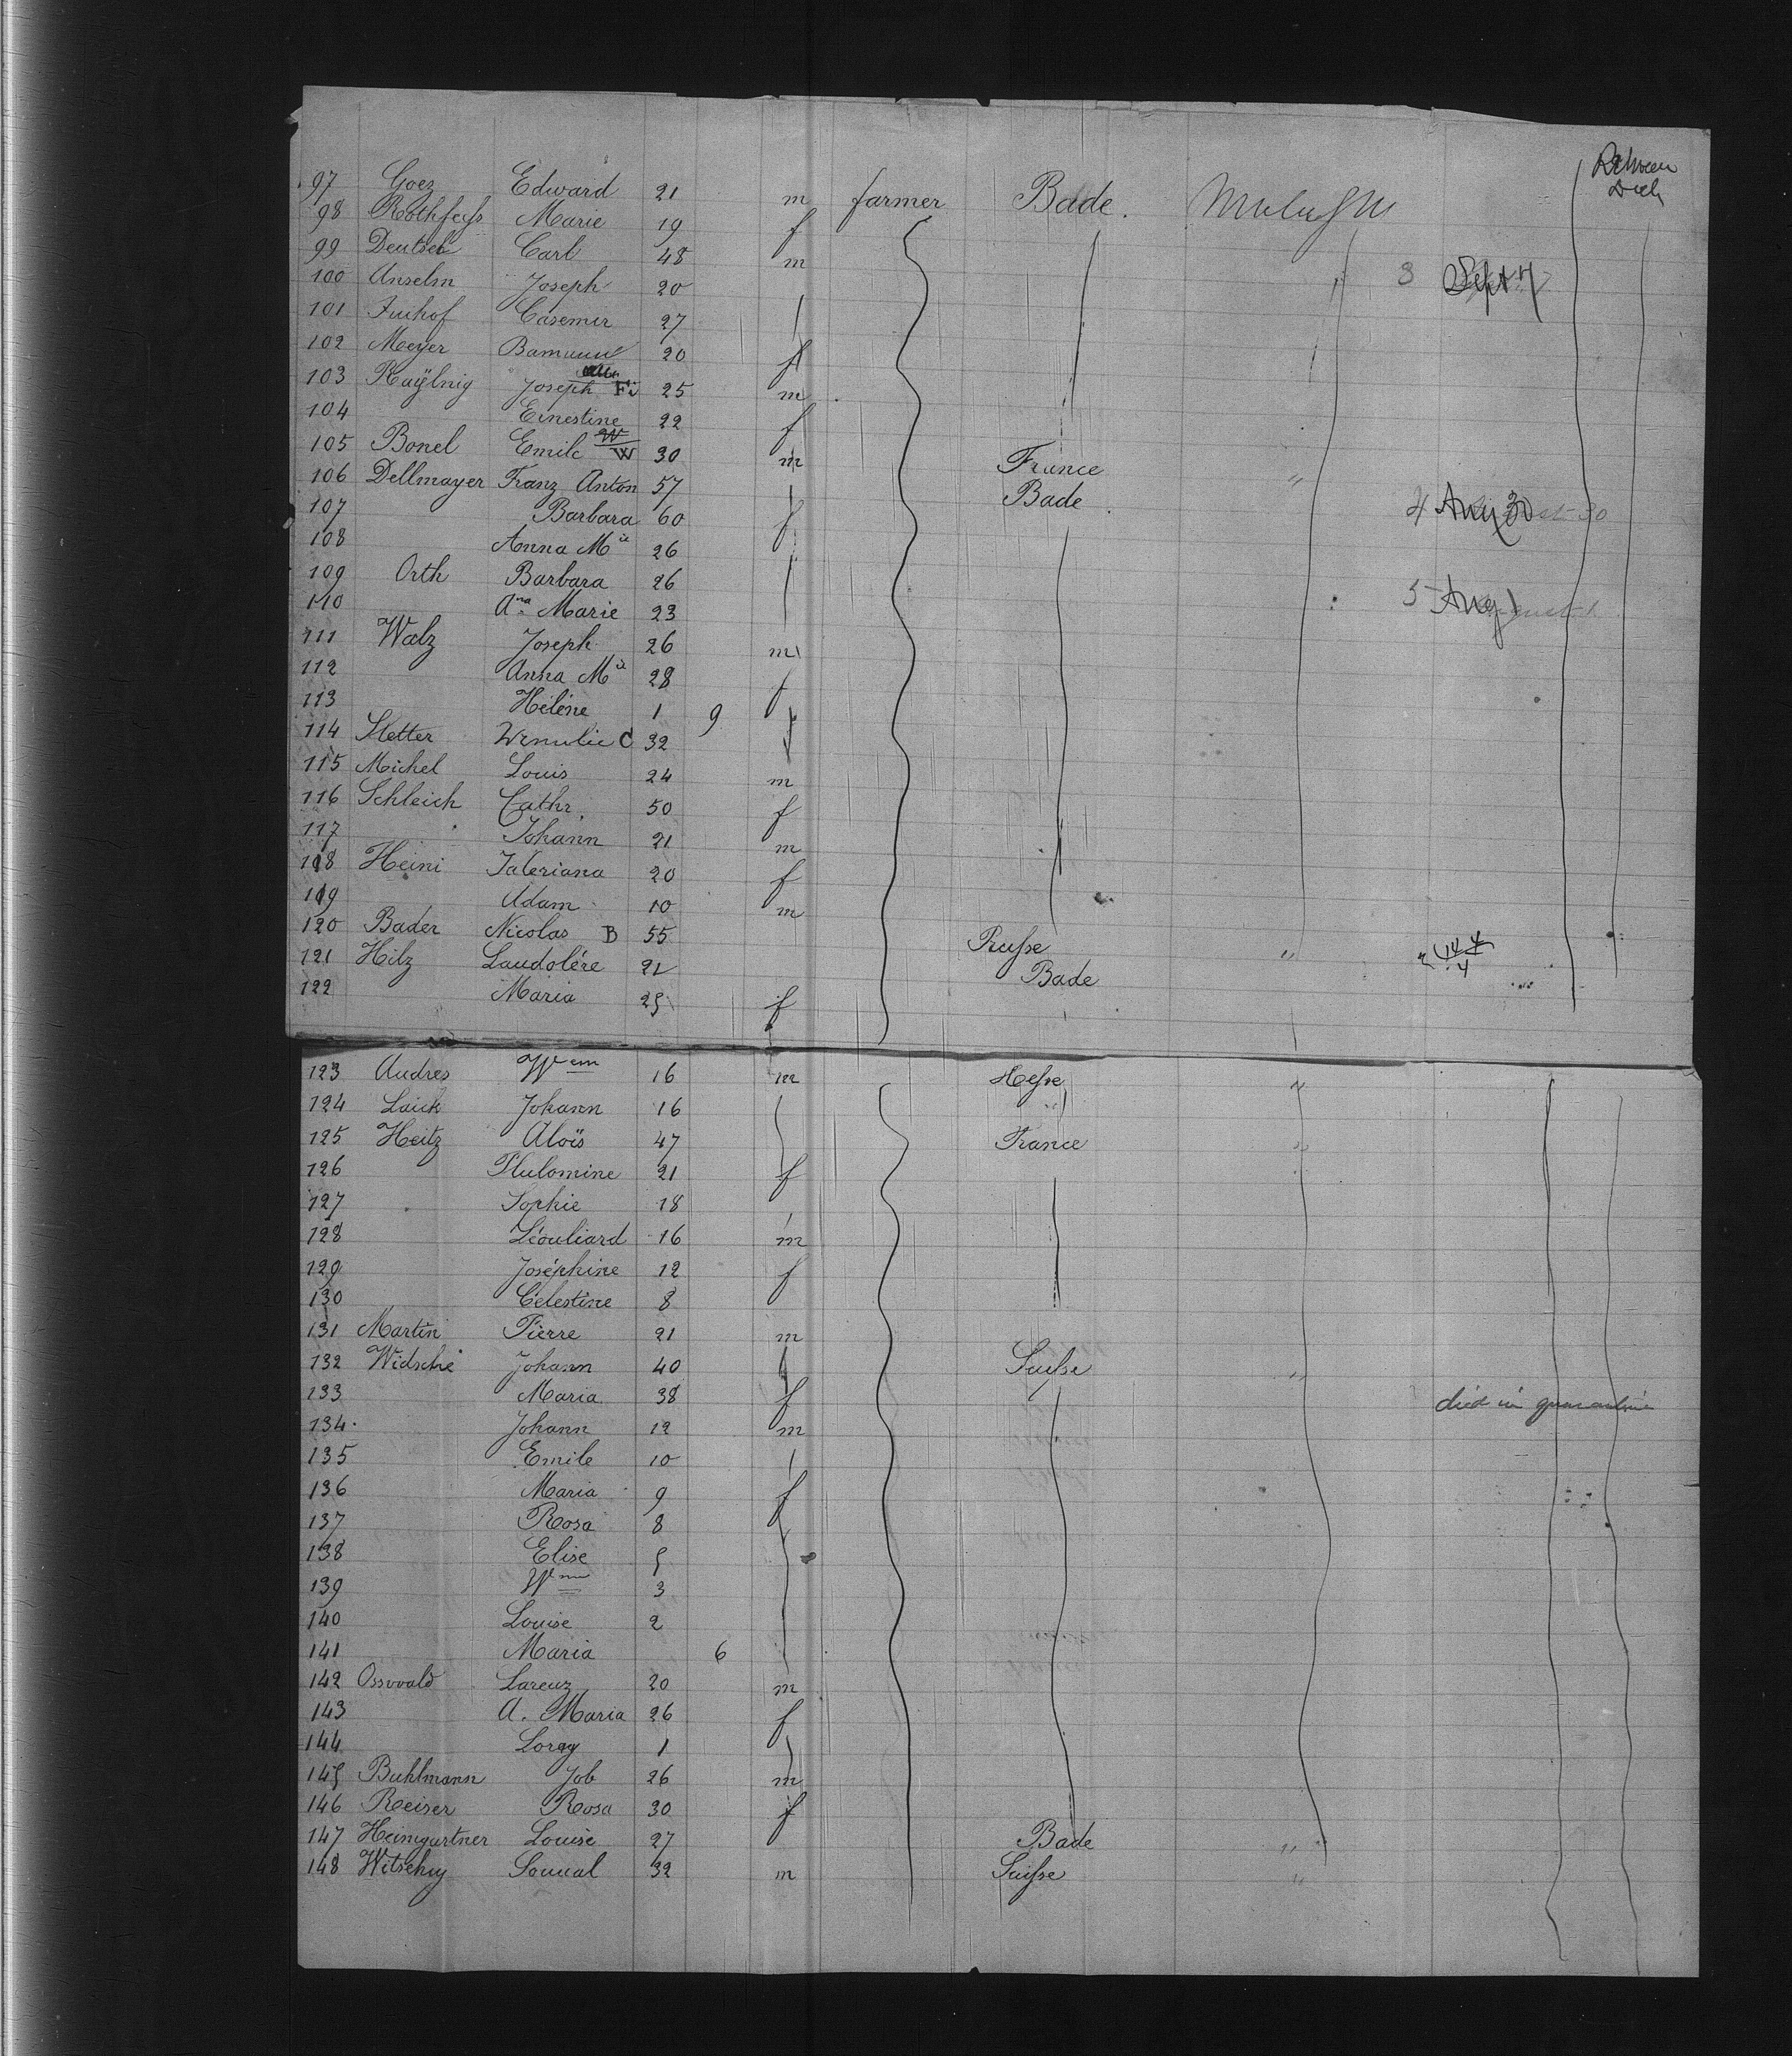 Between
Deck
97 Goez Edward 21 m farmer Bade.
98 Marie 19 f
99 Deutsch Carl 48 m
100 Anselm Joseph 20 3 Sept 7
101 Imhof Casemir 27
102 Meyer 20 f
103 Joseph 25 m
104 Ernestine 22 f
105 Bonel Emile W 30 m France "
106 Dellmayer Franz Anton 57 Bade 4 Aug 30
107 Barbara 60 f
108 Anna Mie 26
109 Orth Barbara 26
110 Ana Marie 23 5 Aug 1
111 Walz Joseph 26 m
112 Anna Mie 28 f
113 Hélène 1 9
114 Stetter C 32 f
115 Michel Louis 24 m
116 Schleich Cathr. 50 f
117 Johann 21 m
118 Heini 20 f
119 Adam 10 m
120 Bader Nicolas B 55 Prusse "
121 Hilz 21 Bade
122 Maria 25 f
123 Andres Wem 16 m Hesse "
124 Laick Johann 16
125 Heitz Aloïs 47 France "
126 21 f
127 Sophie 18
128 16 m
129 Joséphine 12 f
130 Célestine 8
131 Martin Pierre 21 m
132 Widsche Johann 40 Suisse "
133 Maria 38 f died in quarantine
134. Johann 12 m
135 Emile 10
136 Maria 9 f
137 Rosa 8
138 Elise 5
139 Wm 3
140 Louise 2
141 Maria 6
142 Osswald Larenz 20 m
143 A. Maria 26 f
144 1
145 Buhlmann Job 26 m
146 Reiser Rosa 30 f
147 Heimgartner Louise 27 Bade "
148 Witschy 32 m Suisse "